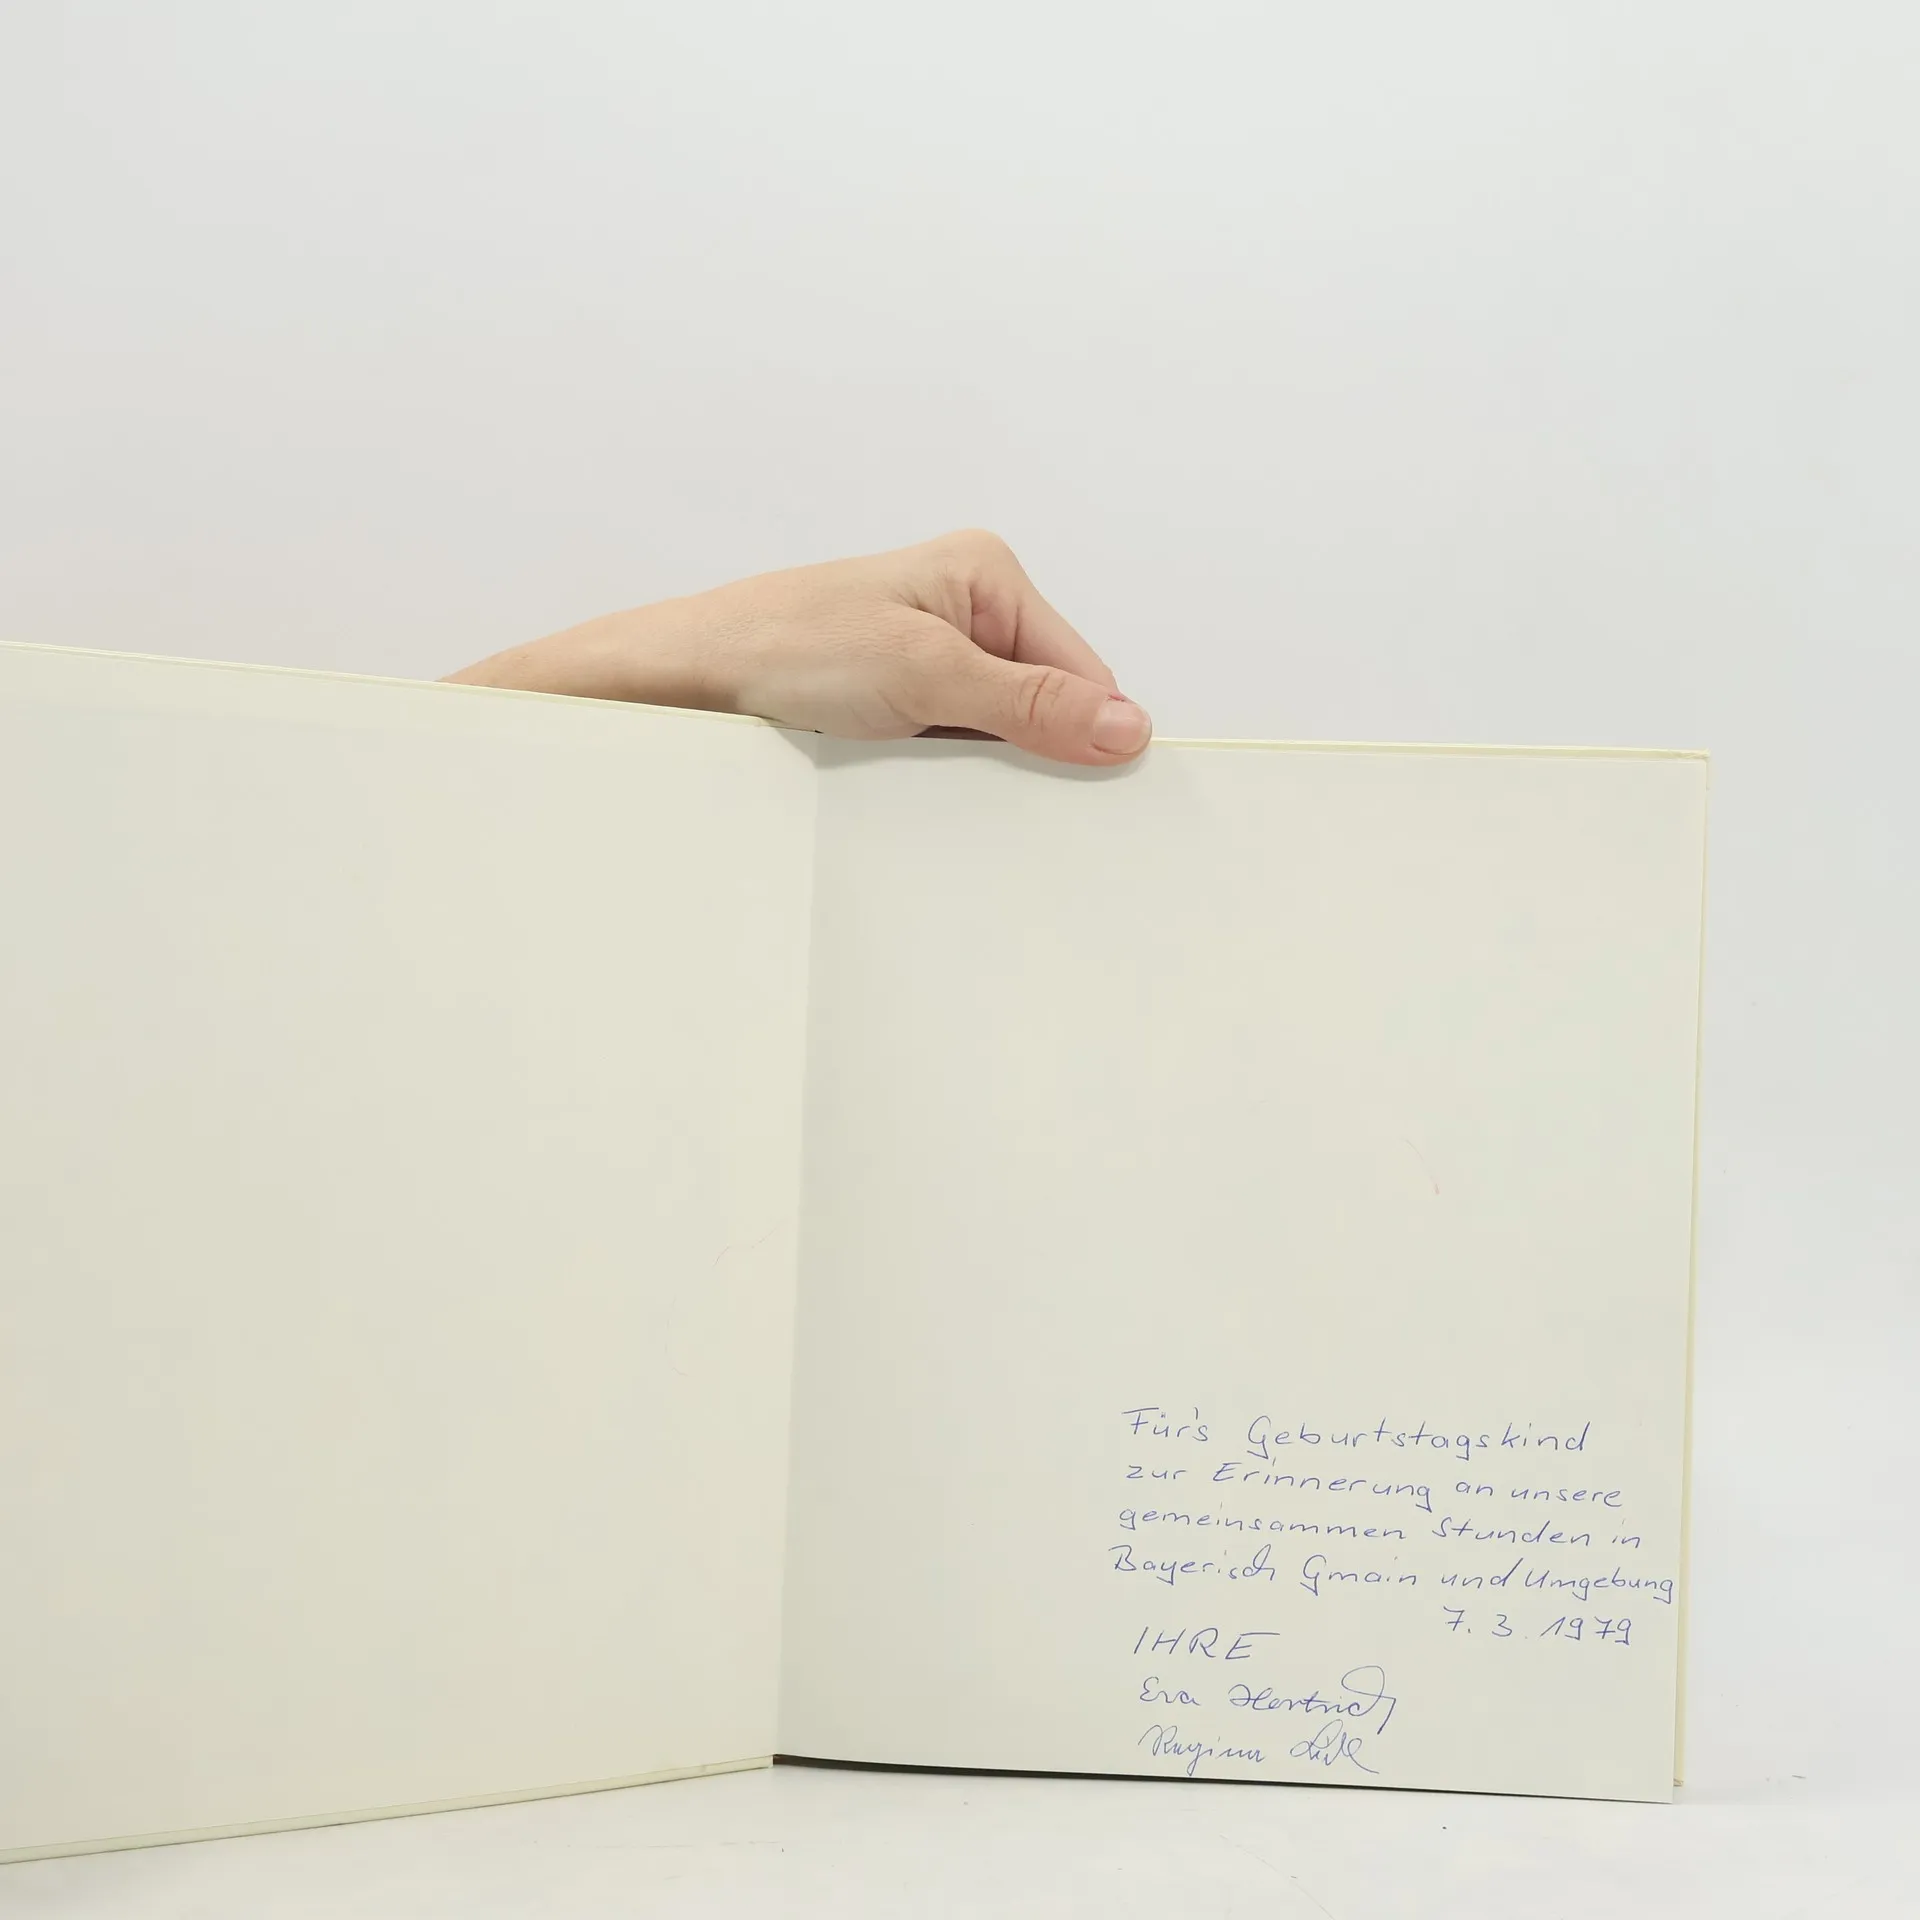 Für's Geburtstagskind
zur Erinnerung an unsere
gemeinsammen Stunden in
Bayerisch Gmain und Umgebung
7. 3. 1979
IHRE
Eva Hertrich
Regina